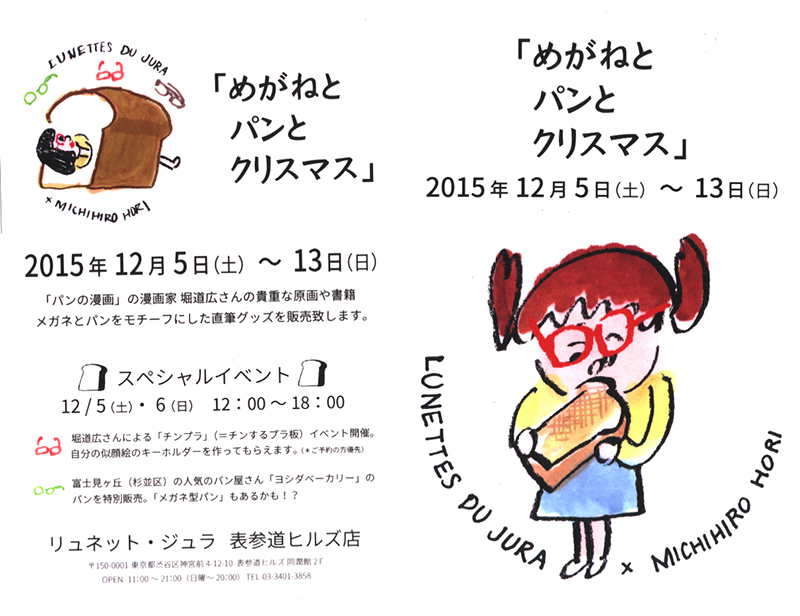 LUNETTES DU JURA
× MICHIHIRO HORI
「めがねと
パンと
クリスマス」
2015年 12月 5日(土) ～ 13日(日)
「パンの漫画」の漫画家 堀道広さんの貴重な原画や書籍
メガネとパンをモチーフにした直筆グッズを販売致します。
スペシャルイベント
12/5(土)・6(日) 12：00～18：00
堀道広さんによる「チンプラ」(＝チンするプラ板) イベント開催。
自分の似顔絵のキーホルダーを作ってもらえます。(＊ご予約の方優先)
富士見ヶ丘（杉並区）の人気のパン屋さん「ヨシダベーカリー」の
パンを特別販売。「メガネ型パン」もあるかも！？
リュネット・ジュラ 表参道ヒルズ店
〒150-0001 東京都渋谷区神宮前 4-12-10 表参道ヒルズ 同潤館 2F
OPEN 11:00～21:00（日曜～20:00） TEL 03-3401-3858
「めがねと
パンと
クリスマス」
2015年 12月 5日(土) ～ 13日(日)
LUNETTES DU JURA × MICHIHIRO HORI